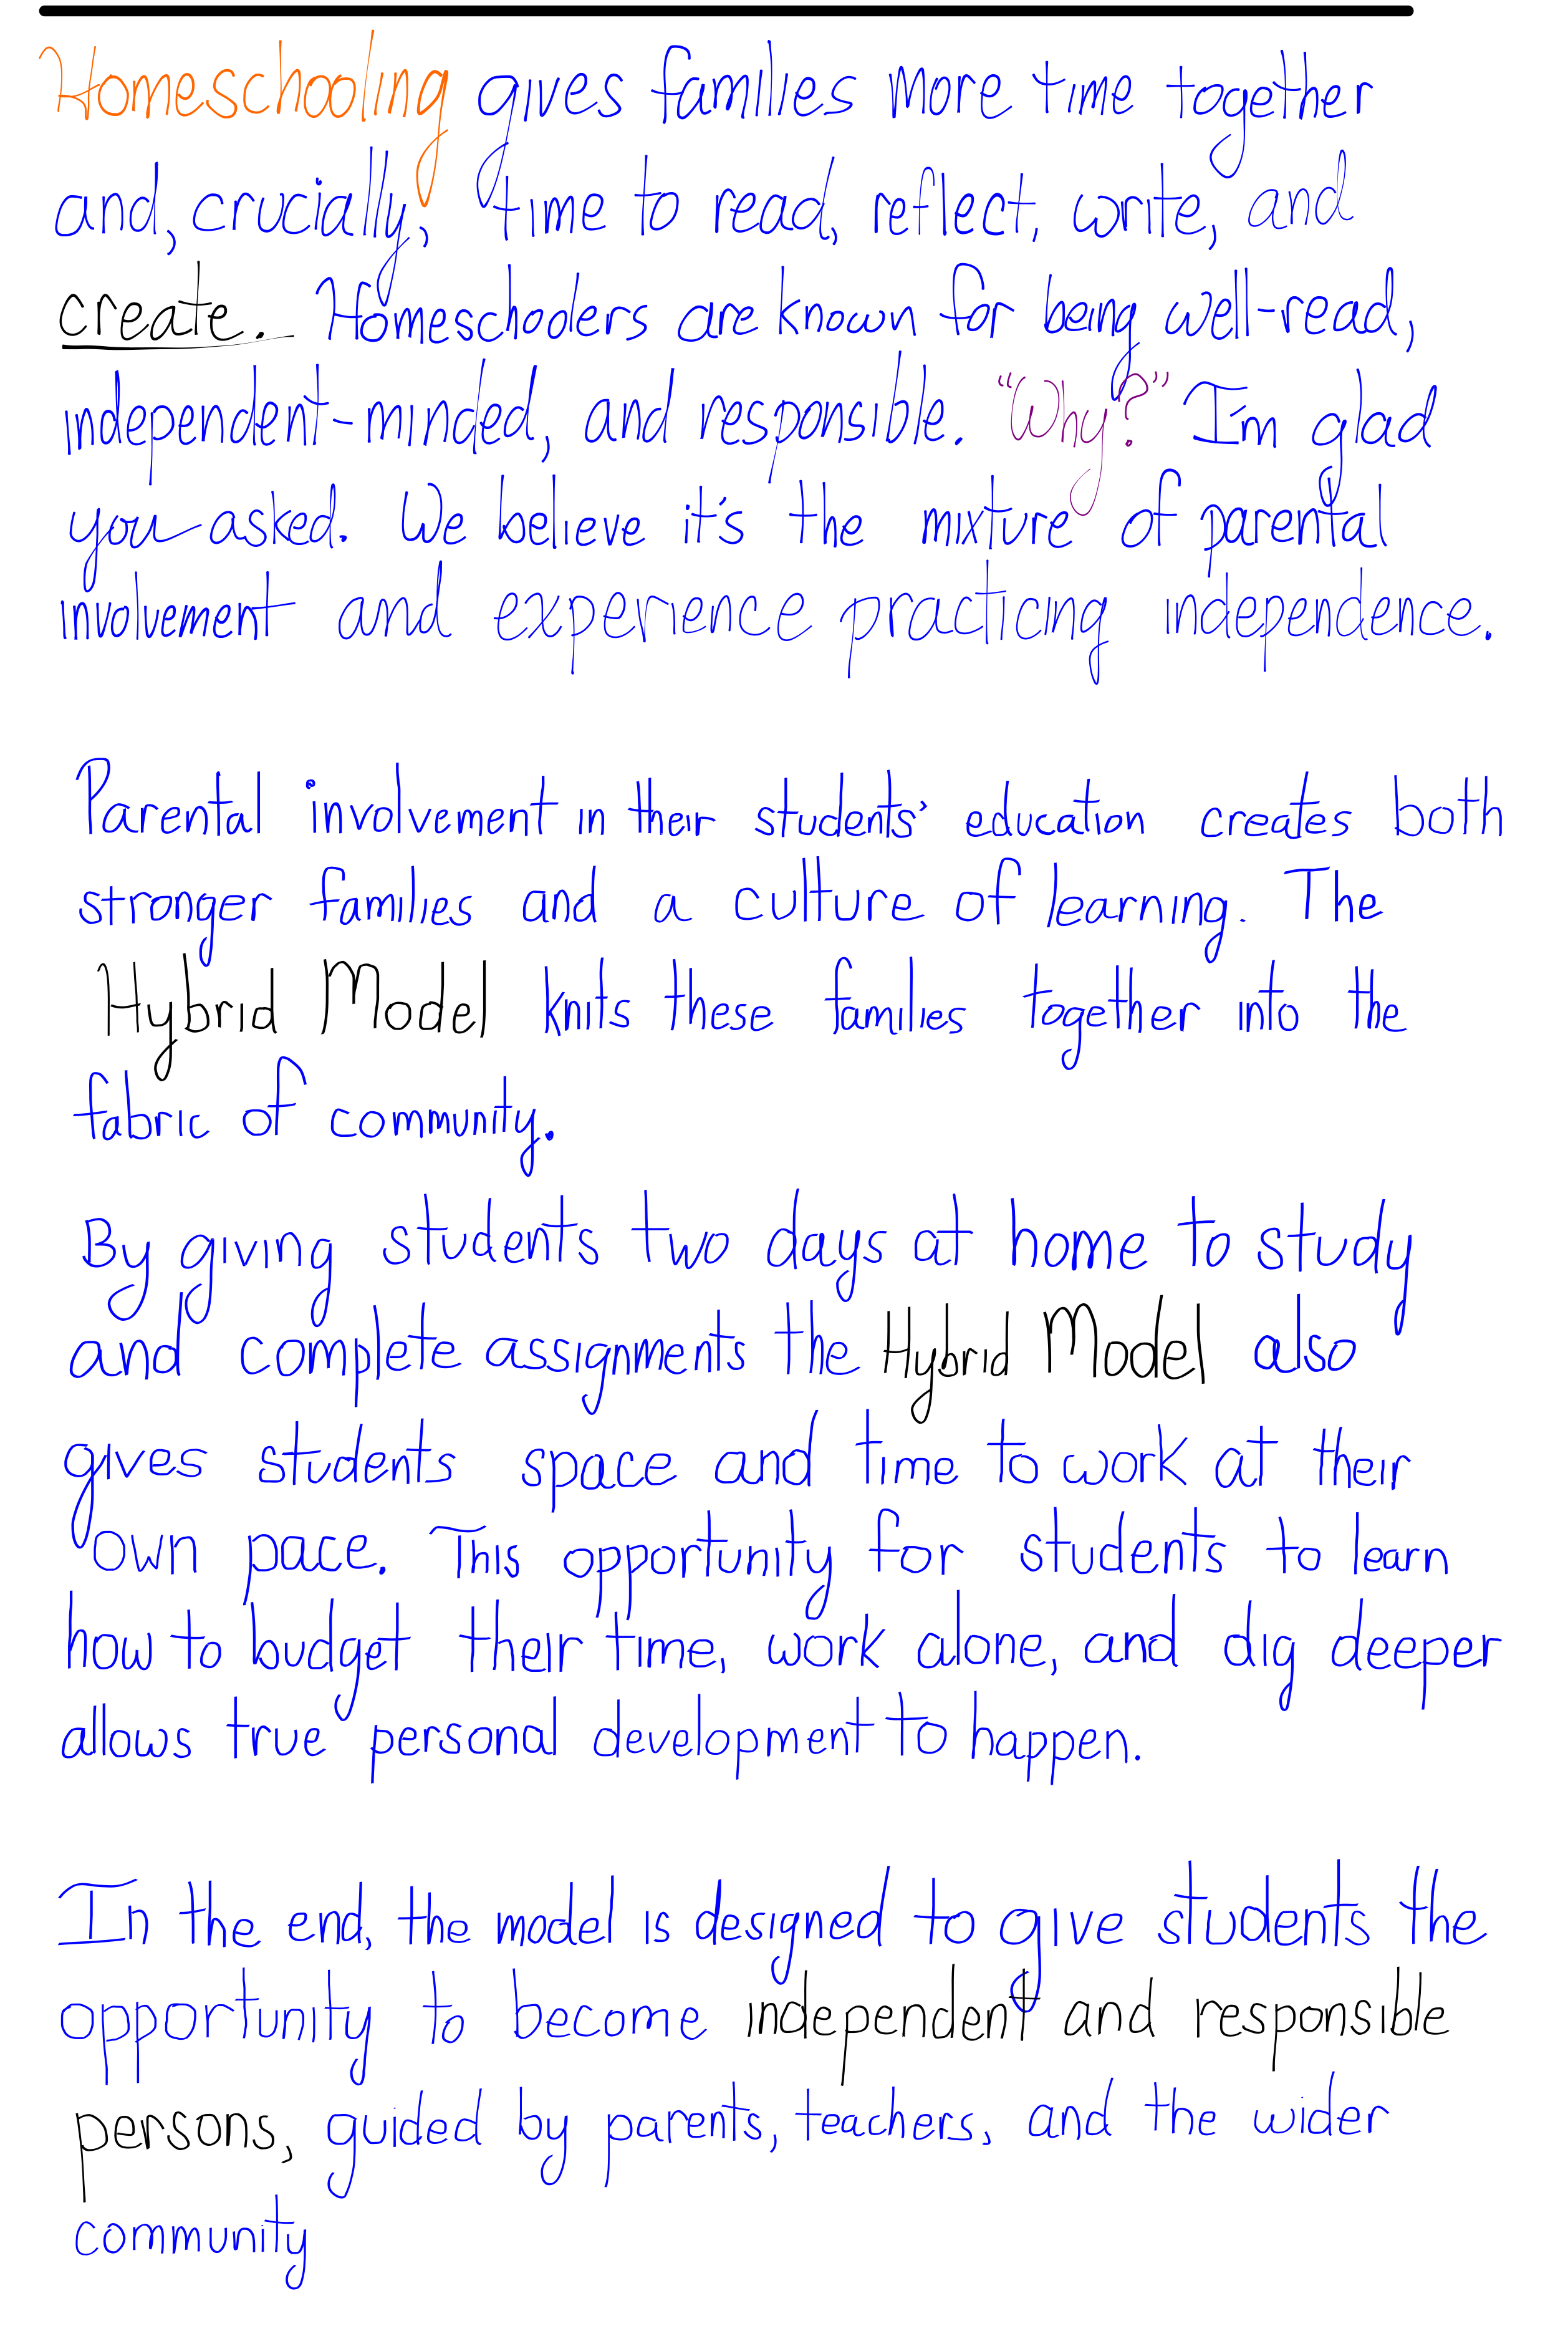 Homeschooling gives families more time together
and, crucially, time to read, reflect, write, and
create. Homeschoolers are known for being well-read,
independent-minded, and responsible. "Why?" I'm glad
you asked. We believe it's the mixture of parental
involvement and experience practicing independence.
Parental involvement in their students' education creates both
stronger families and a culture of learning. The
Hybrid Model knits these families together into the
fabric of community.
By giving students two days at home to study
and complete assignments the Hybrid Model also
gives students space and time to work at their
own pace. This opportunity for students to learn
how to budget their time, work alone, and dig deeper
allows true personal development to happen.
In the end, the model is designed to give students the
opportunity to become independent and responsible
persons, guided by parents, teachers, and the wider
community